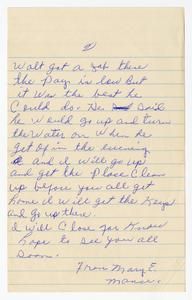 2
Walt got a job there
the Pay is low But
it Was the best he
Could do. He said
he Would go up and turn
the Water on When he
get off in the evening
and i Will go up
and get the Place Clean
up before you all get
home i Will get the Keys
and go up there.
i Will Close for Know
hope to see you all
Soon.
From Mary E.